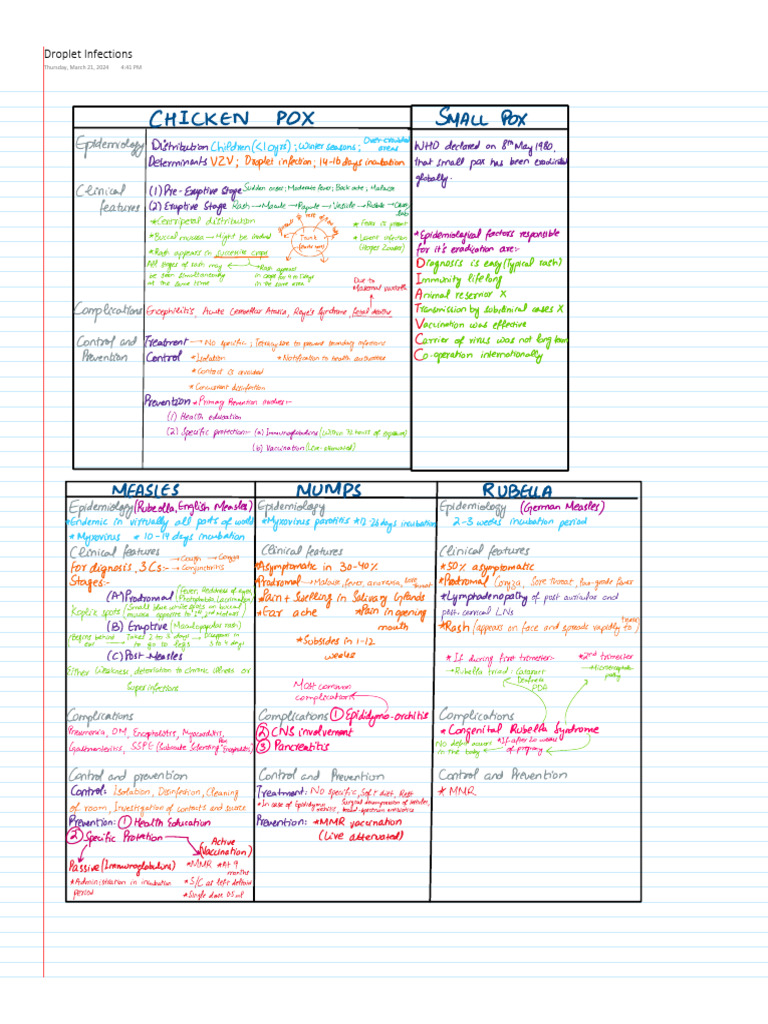 Droplet Infections
Thursday, March 21, 2024 4:41 PM
CHICKEN POX
Epidemiology
Distribution Children (<10yrs); Winter seasons; Over-crowded areas
Determinants VZV; Droplet infection; 14-16 days incubation
Clinical features
(1) Pre-Eruptive Stage Sudden onset; Moderate fever; Back ache; Malaise
(2) Eruptive Stage Rash → Macule → Papule → Vesicle → Pustule →
*Centripetal distribution
*Buccal mucosa → Might be involved
*Rash appears in successive crops
All stages of rash may be seen simultaneously at the same time
Rash appears in crops for 4 to 5 days in the same area
Trunk
*Fever is present
*Latent infection (Herpes Zoster)
Complications
Encephilitis, Acute Cerebellar Ataxia, Reye's Syndrome,
Due to Maternal varicella
Control and Prevention
Treatment → No specific; to prevent secondary infections
Control *Isolation *Notification to health authorities
*Contact is avoided
*Concurrent disinfection
Prevention *Primary Prevention involves:-
(1) Health education
(2) Specific protection:- (a) Immunoglobulins (within 72 hours of exposure)
(b) Vaccination (Live-attenuated)
SMALL POX
WHO declared on 8th May 1980,
that small pox has been eradicated
globally.
*Epidemiological factors responsible
for it's eradication are:-
Diagnosis is easy (Typical rash)
Immunity lifelong
Animal reservior X
Transmission by subclinical cases X
Vaccination was effective
Carrier of virus was not long term
Co-operation internationally
MEASLES
Epidemiology (Rubeolla, English Measles)
*Endemic in virtually all parts of world
*Myxovirus *10-14 days incubation
Clinical features
For dignosis, 3Cs:- → Cough → Coryza → Conjunctivitis
Stages:-
(A) Prodromal (Fever, Redness of eyes, Photophobia, Lacrimation)
Koplik spots (Small blue white spots on buccal mucosa opposite to 1st, 2nd Molars)
(B) Eruptive (Maculopapular rash)
Begins behind ear → Takes 2 to 3 days to go to legs → Disappear in 3 to 4 days
(C) Post-Measles
Either Weakness, deterioation to chronic illness or
Super infections
Complications
Pneumonia, OM, Encephalitis, Myocarditis,
Gastroenteritis, SSPE (Subacute Sclerosing Pan Encephalitis)
Control and prevention
Control: Isolation, Disinfection, Cleaning
of room, Investigation of contacts and source
Prevention: (1) Health Education
(2) Specific Protection
Active (Vaccination)
Passive (Immunoglobulins)
*Administration in incubation period
*MMR *At 9 months
*S/C at left deltoid
*Single dose 0.5 ml
MUMPS
Epidemiology
*Myxovirus parotitis incubation
Clinical features
*Asymptomatic in 30-40%
Prodromal → Malaise, fever, anorexia, sore throat
*Pain + Swelling in Salivary Glands
*Ear ache *Pain in opening
mouth
*Subsides in 1-12
weeks
Most common complication
Complications (1) Epididymo-orchitis
(2) CNS involvement
(3) Pancreatitis
Control and Prevention
Treatment: No specific, Soft diet, Rest
*In case of Epididymo orchitis, Surgical decompression of testicles, broad spectrum antibiotics
Prevention: *MMR vaccination
(Live attenuated)
RUBELLA
Epidemiology (German Measles)
2-3 weeks incubation period
Clinical features
*50% asymptomatic
*Prodromal Coryza, Sore throat, low-grade fever
*Lymphadenopathy of post auricular and
post-cervical LNs
*Rash (appears on face and spreads rapidly to trunk)
*If during first trimester
→ Rubella triad: Cataract
Deafness
PDA
*2nd trimester
Complications
*Congenital Rubella Syndrome
No defect occurs in the baby ← *If after 20 weeks of pregnancy
Control and Prevention
*MMR